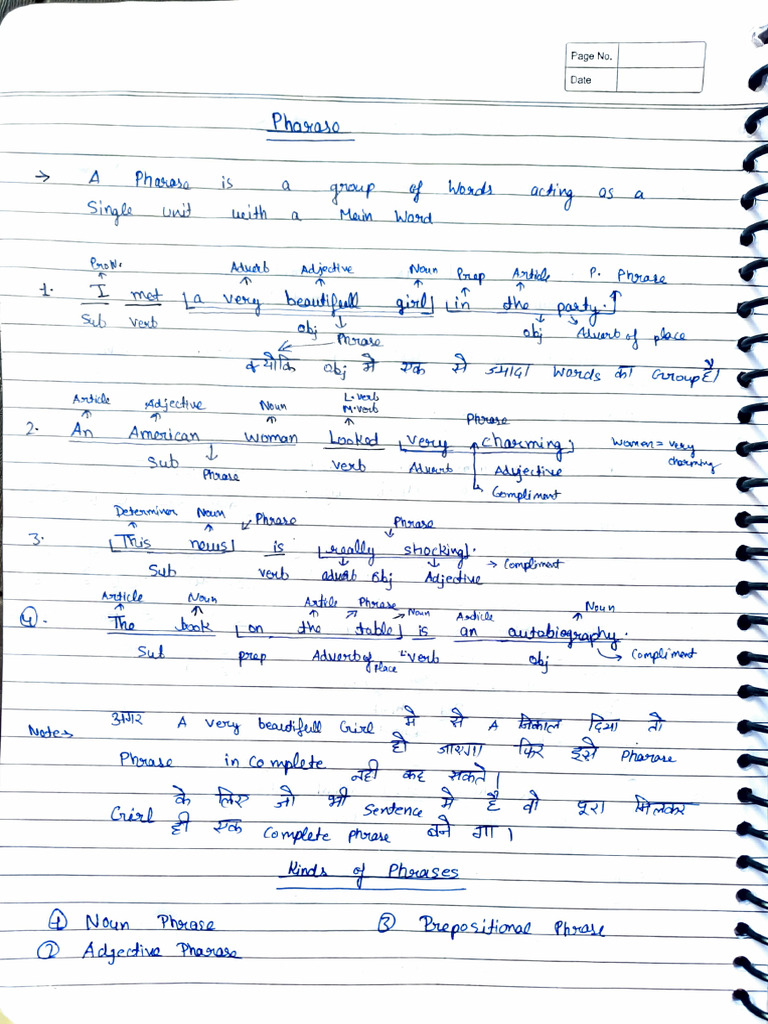 Page No.
Date
Pharase
→ A Pharase is a group of words acting as a
Single unit with a Main Word
Pron. Adverb Adjective Noun Prep Article P. Phrase
1. I met [a very beautifull girl] [in the party.]
Sub verb obj obj Adverb of place
Phrase
क्योकि obj मे एक से ज्यादा words का Group है।
Article Adjective Noun L.verb Phrase
M.verb
2. An American woman Looked [very charming] Women = very
charming
Sub verb Adverb Adjective
Phrase Compliment
Determiner Noun Phrase Phrase
3. [This news] is [really shocking]. → Compliment
Sub verb adverb obj Adjective
Article Noun Article Phrase Noun Article Noun
4. The book [on the table] is an autobiography.
Sub prep Adverb of place verb obj Compliment
Notes अगर A very beautifull Girl मे से A निकाल दिया तो
Phrase in complete हो जाएगा फिर इसे Pharase
नही कह सकते।
Girl के लिए जो भी Sentence मे है वो पूरा मिलकर
ही एक Complete phrase बने गा।
Kinds of Phrases
① Noun Phrase ③ Prepositional Phrase
② Adjective Pharase